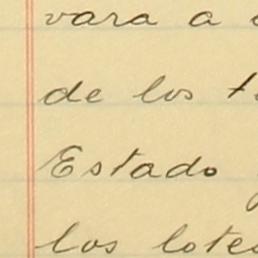 vara a
de los
Estado
los lotes